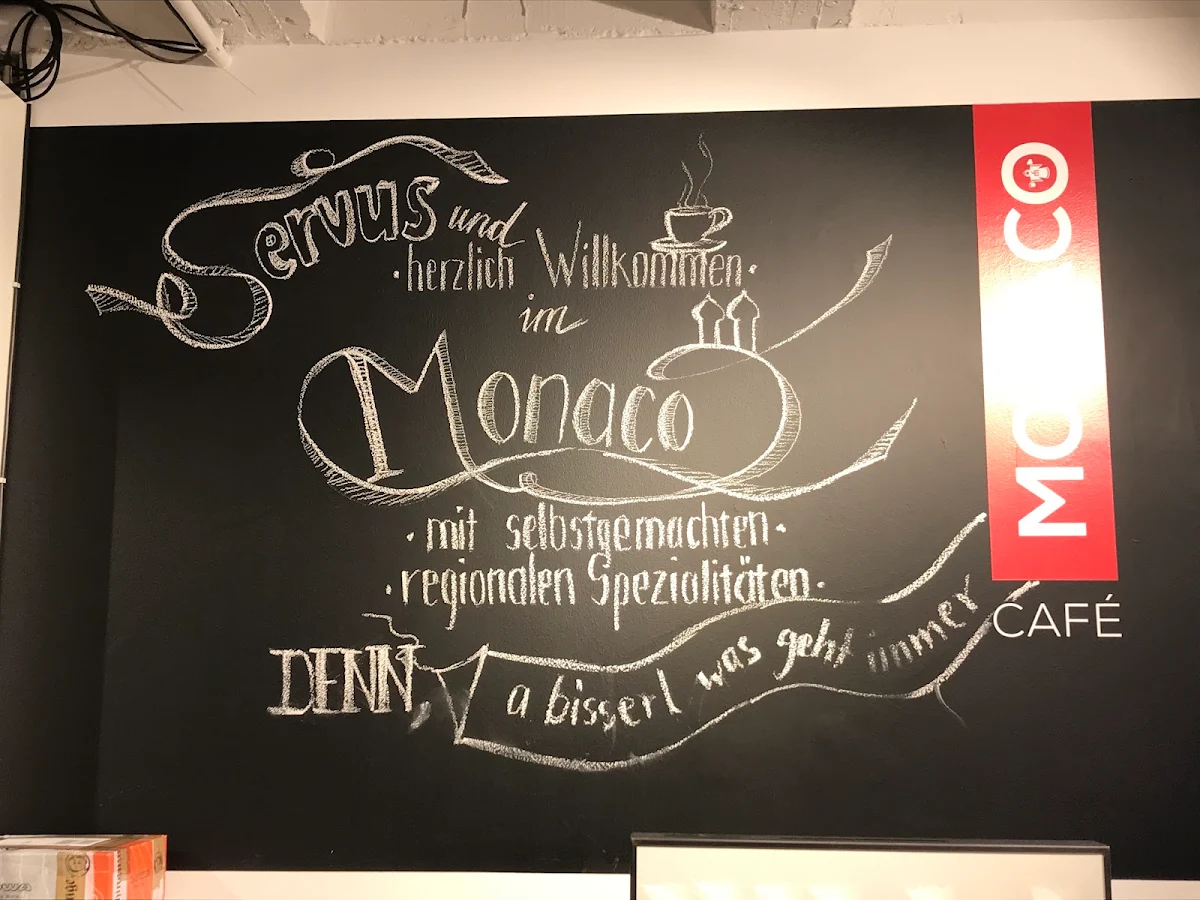 Servus und
·herzlich Willkommen·
im
Monaco
·mit selbstgemachten·
·regionalen Spezialitäten·
DENN,
a bisserl was geht immer
CAFÉ